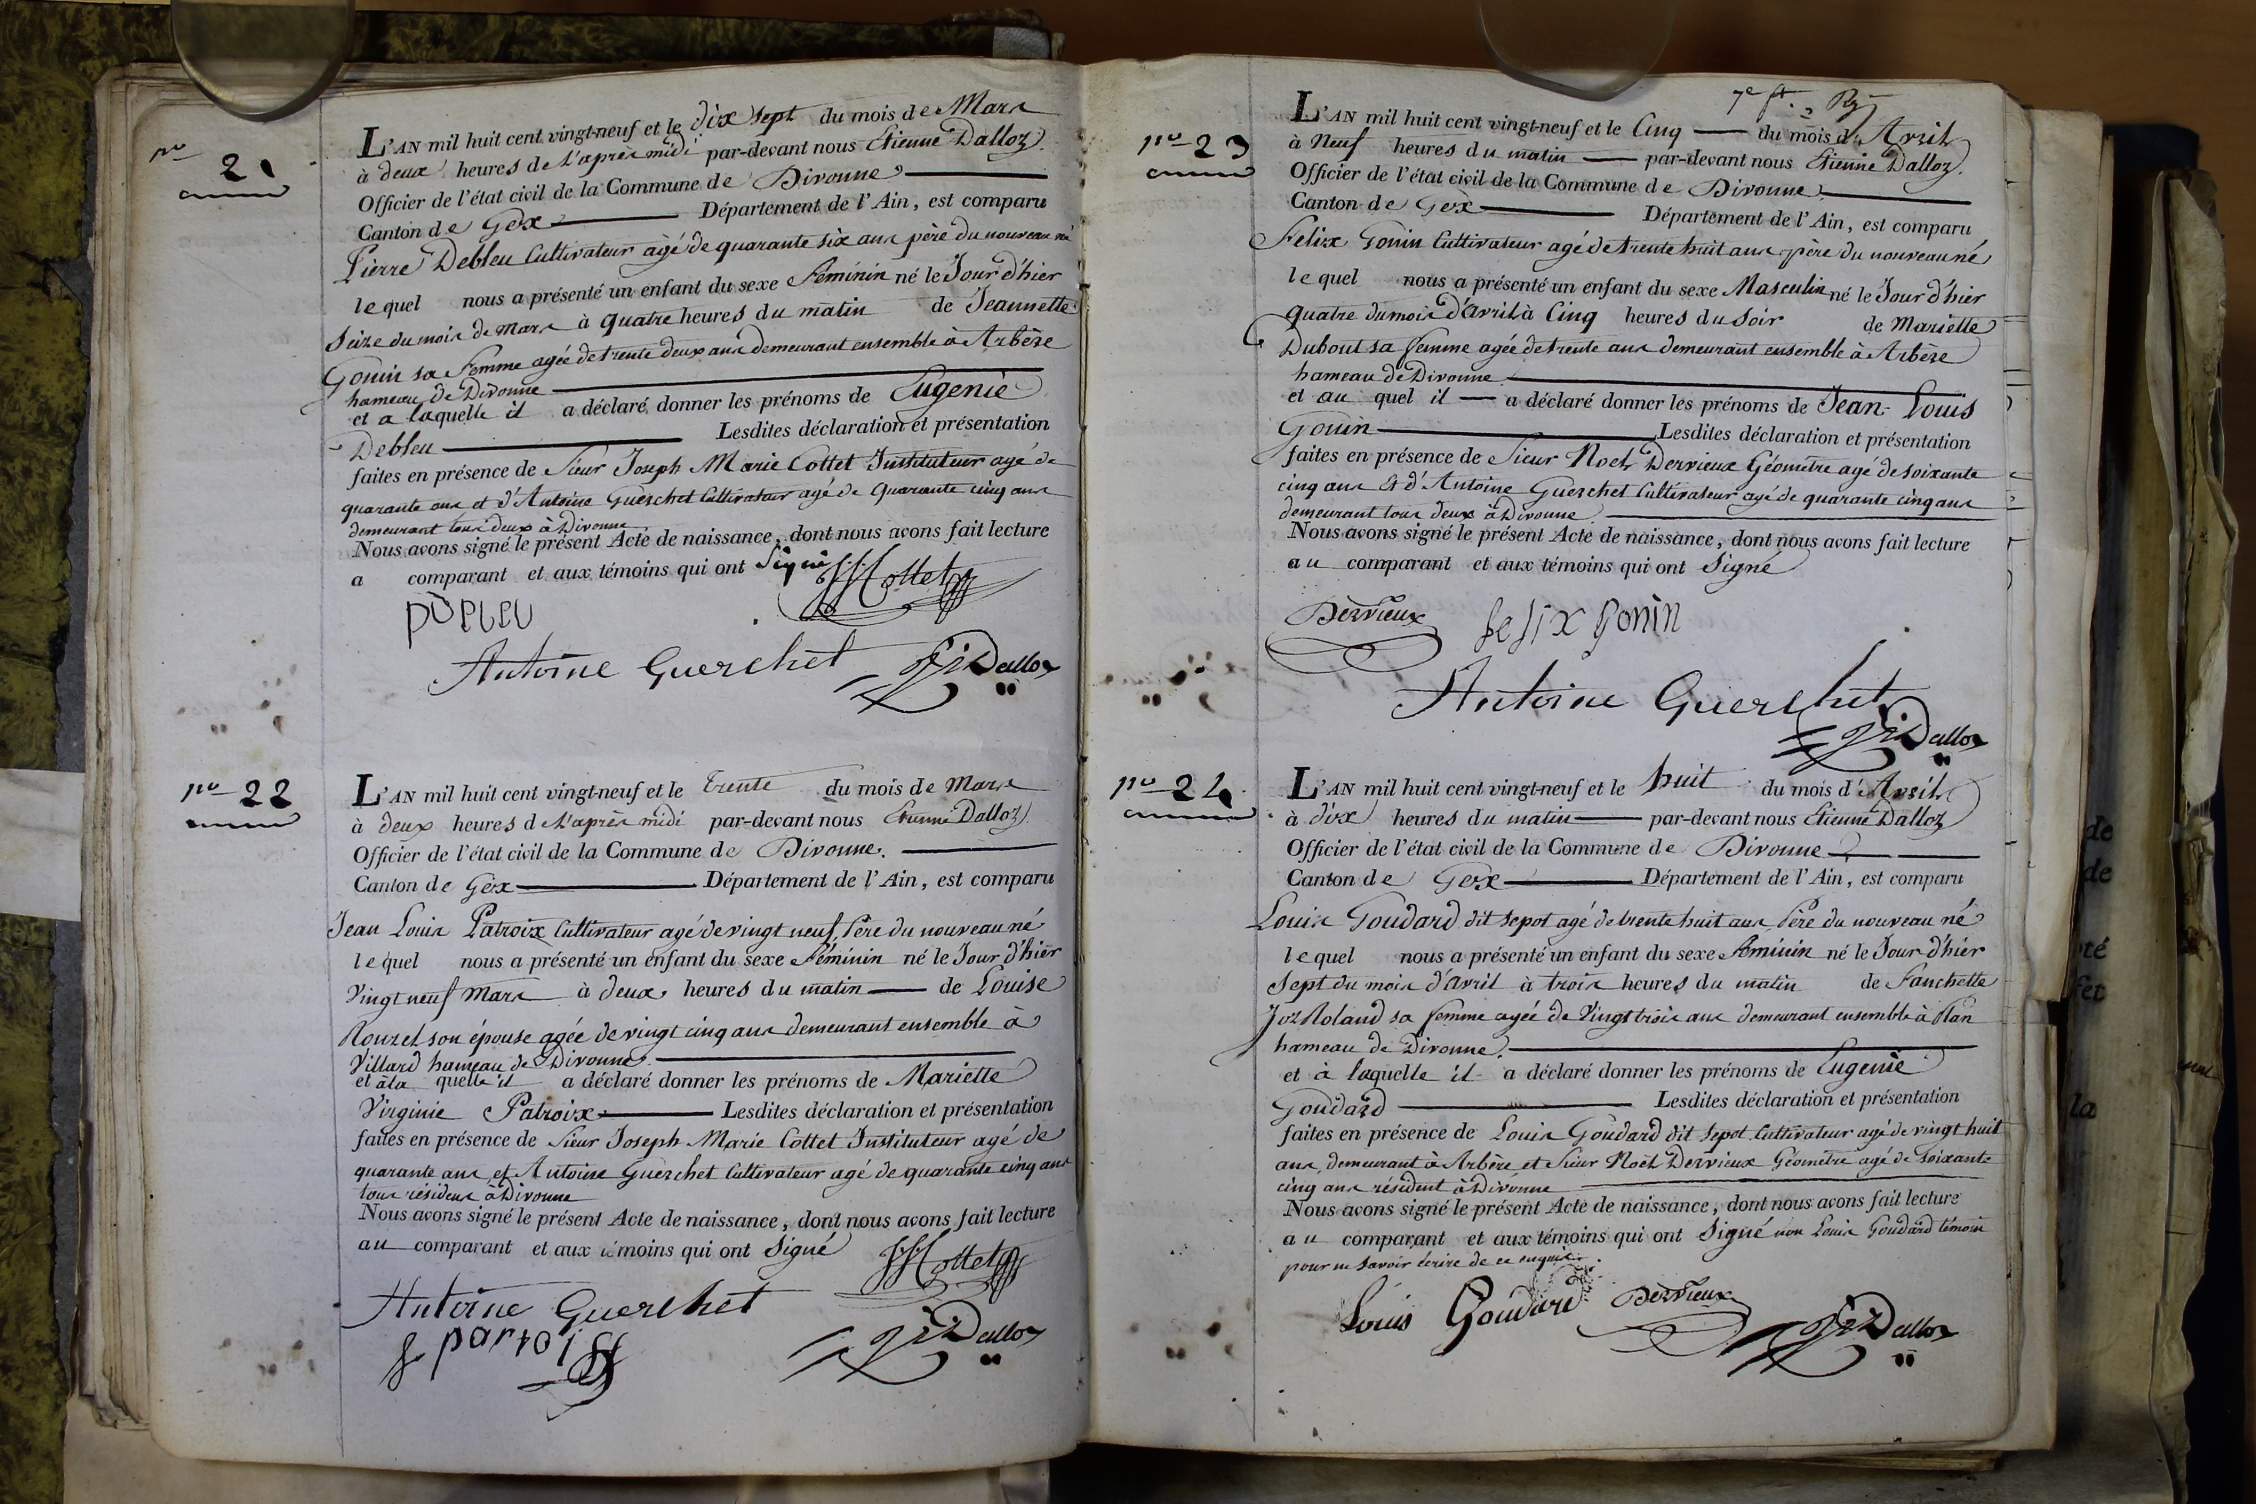 no 21
L'AN mil huit cent vingt-neuf et le dix sept du mois de Mars
à deux heures de l'après midi par-devant nous Etienne Dalloz
Officier de l'état civil de la Commune de Divonne
Canton de Gex Département de l'Ain, est comparu
Pierre Debleu Cultivateur agé de quarante six ans père du nouveau né
lequel nous a présenté un enfant du sexe Féminin né le Jour d'hier
Seize du mois de Mars à quatre heures du matin de Jeannette
Gonin sa Femme agée de trente deux ans demeurant ensemble à Arbère
hameau de Divonne
et a laquelle il a déclaré donner les prénoms de Eugenie
Debleu Lesdites déclaration et présentation
faites en présence de Sieur Joseph Marie Cottet Instituteur agé de
quarante ans et d'Antoine Guerchet Cultivateur agé de Quarante cinq ans
demeurant tous deux à Divonne
Nous avons signé le présent Acte de naissance, dont nous avons fait lecture
a comparant et aux témoins qui ont Signé
Cottet
Antoine Guerchet Dalloz
no 22
L'AN mil huit cent vingt-neuf et le trente du mois de Mars
à deux heures de l'après midi par-devant nous Etienne Dalloz
Officier de l'état civil de la Commune de Divonne.
Canton de Gex Département de l'Ain, est comparu
Jean Louis Patroix Cultivateur agé de vingt neuf, Père du nouveau né
lequel nous a présenté un enfant du sexe Féminin né le Jour d'hier
Vingt neuf Mars à deux heures du matin de Louise
Rouzet son épouse agée de vingt cinq ans demeurant ensemble à
Villard hameau de Divonne.
et à la quelle il a déclaré donner les prénoms de Mariette
Virginie Patroix Lesdites déclaration et présentation
faites en présence de Sieur Joseph Marie Cottet Instituteur agé de
quarante ans, et Antoine Guerchet Cultivateur agé de quarante cinq ans
tous résidens à Divonne
Nous avons signé le présent Acte de naissance, dont nous avons fait lecture
au comparant et aux témoins qui ont Signé
Cottet
Antoine Guerchet
Dalloz
no 23
L'AN mil huit cent vingt-neuf et le Cinq du mois d'Avril
à Neuf heures du matin par-devant nous Etienne Dalloz.
Officier de l'état civil de la Commune de Divonne
Canton de Gex Département de l'Ain, est comparu
Felix Gonin Cultivateur agé de trente huit ans père du nouveau né
lequel nous a présenté un enfant du sexe Masculin né le Jour d'hier
quatre du mois d'avril à Cinq heures du soir de Mariette
Dubout sa femme agée de trente ans demeurant ensemble à Arbère
hameau de Divonne.
et au quel il a déclaré donner les prénoms de Jean-Louis
Gonin Lesdites déclaration et présentation
faites en présence de Sieur Noel Dervieux Géomètre agé de soixante
cinq ans et d'Antoine Guerchet Cultivateur agé de quarante cinq ans
demeurant tous deux à Divonne
Nous avons signé le présent Acte de naissance, dont nous avons fait lecture
au comparant et aux témoins qui ont Signé
Dervieux felix gonin
Antoine Guerchet
Dalloz
no 24
L'AN mil huit cent vingt-neuf et le huit du mois d'Avril
à dix heures du matin par-devant nous Etienne Dalloz
Officier de l'état civil de la Commune de Divonne
Canton de Gex Département de l'Ain, est comparu
Louis Goudard dit sepot agé de trente huit ans Père du nouveau né
lequel nous a présenté un enfant du sexe Féminin né le Jour d'hier
Sept du mois d'avril à trois heures du matin de Fanchette
Roland sa femme agée de Vingt trois ans demeurant ensemble à Plan
hameau de Divonne.
et à laquelle il a déclaré donner les prénoms de Eugenie
Goudard Lesdites déclaration et présentation
faites en présence de Louis Goudard dit sepot Cultivateur agé de vingt huit
ans, demeurant à Arbère et Sieur Noël Dervieux Géomètre agé de soixante
cinq ans résident à Divonne
Nous avons signé le présent Acte de naissance, dont nous avons fait lecture
au comparant et aux témoins qui ont Signé non Louis Goudard témoin
pour ne savoir écrire de ce enquis.
Louis Goudard Dervieux
Dalloz